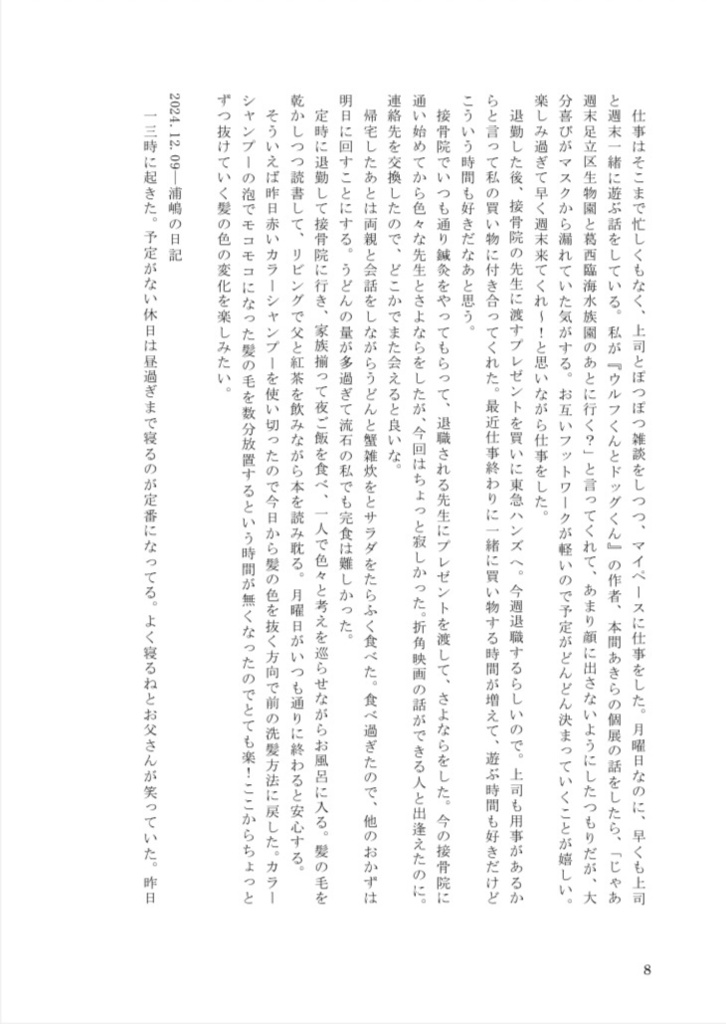 仕事はそこまで忙しくもなく、上司とぽつぽつ雑談をしつつ、マイペースに仕事をした。月曜日なのに、早くも上司
と週末一緒に遊ぶ話をしている。私が『ウルフくんとドッグくん』の作者、本間あきらの個展の話をしたら、「じゃあ
週末足立区生物園と葛西臨海水族園のあとに行く？」と言ってくれて、あまり顔に出さないようにしたつもりだが、大
分喜びがマスクから漏れていた気がする。お互いフットワークが軽いので予定がどんどん決まっていくことが嬉しい。
楽しみ過ぎて早く週末来てくれ〜！と思いながら仕事をした。
退勤した後、接骨院の先生に渡すプレゼントを買いに東急ハンズへ。今週退職するらしいので。上司も用事があるか
らと言って私の買い物に付き合ってくれた。最近仕事終わりに一緒に買い物する時間が増えて、遊ぶ時間も好きだけど
こういう時間も好きだなあと思う。
接骨院でいつも通り鍼灸をやってもらって、退職される先生にプレゼントを渡して、さよならをした。今の接骨院に
通い始めてから色々な先生とさよならをしたが、今回はちょっと寂しかった。折角映画の話ができる人と出逢えたのに。
連絡先を交換したので、どこかでまた会えると良いな。
帰宅したあとは両親と会話をしながらうどんと蟹雑炊をとサラダをたらふく食べた。食べ過ぎたので、他のおかずは
明日に回すことにする。うどんの量が多過ぎて流石の私でも完食は難しかった。
定時に退勤して接骨院に行き、家族揃って夜ご飯を食べ、一人で色々と考えを巡らせながらお風呂に入る。髪の毛を
乾かしつつ読書して、リビングで父と紅茶を飲みながら本を読み耽る。月曜日がいつも通りに終わると安心する。
そういえば昨日赤いカラーシャンプーを使い切ったので今日から髪の色を抜く方向で前の洗髪方法に戻した。カラー
シャンプーの泡でモコモコになった髪の毛を数分放置するという時間が無くなったのでとても楽！ここからちょっと
ずつ抜けていく髪の色の変化を楽しみたい。
2024.12.09―浦嶋の日記
一三時に起きた。予定がない休日は昼過ぎまで寝るのが定番になってる。よく寝るねとお父さんが笑っていた。昨日
8